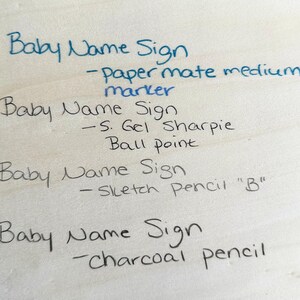 Baby Name Sign
-paper mate medium
marker
Baby Name Sign
-S. Gel Sharpie
Ball point
Baby Name Sign
-Sketch pencil "B"
Baby Name Sign
-charcoal pencil